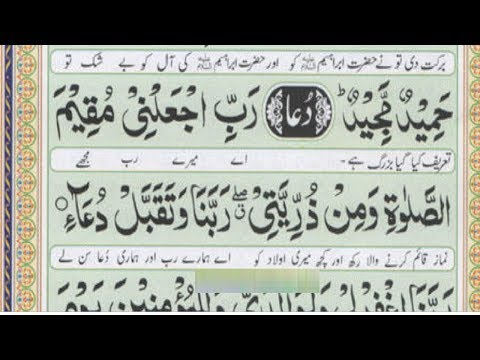 برکت دی تو نے حضرت ابراہیم کو اور حضرت ابراہیم کی آل کو بے شک تو
حَمِيْدٌ مَّجِيْدٌ ؕ دُعَا رَبِّ اجْعَلْنِىْ مُقِيْمَ
تعریف کیا گیا بزرگ ہے۔ اے میرے رب مجھے
الصَّلٰوةِ وَمِنْ ذُرِّيَّتِىْ ۖ رَبَّنَا وَتَقَبَّلْ دُعَآءِ
نماز قائم کرنے والا رکھ اور کچھ میری اولاد کو اے ہمارے رب اور ہماری دُعا سن لے
رَبَّنَا اغْفِرْ لِىْ وَلِوَالِدَىَّ وَلِلْمُؤْمِنِيْنَ يَوْمَ